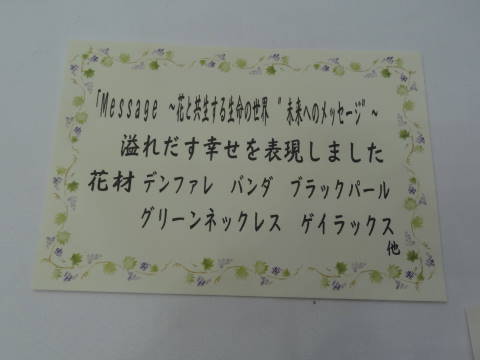 「Message ～花と共生する生命の世界 “未来へのメッセージ”～
溢れだす幸せを表現しました
花材 デンファレ バンダ ブラックパール
グリーンネックレス ゲイラックス
他